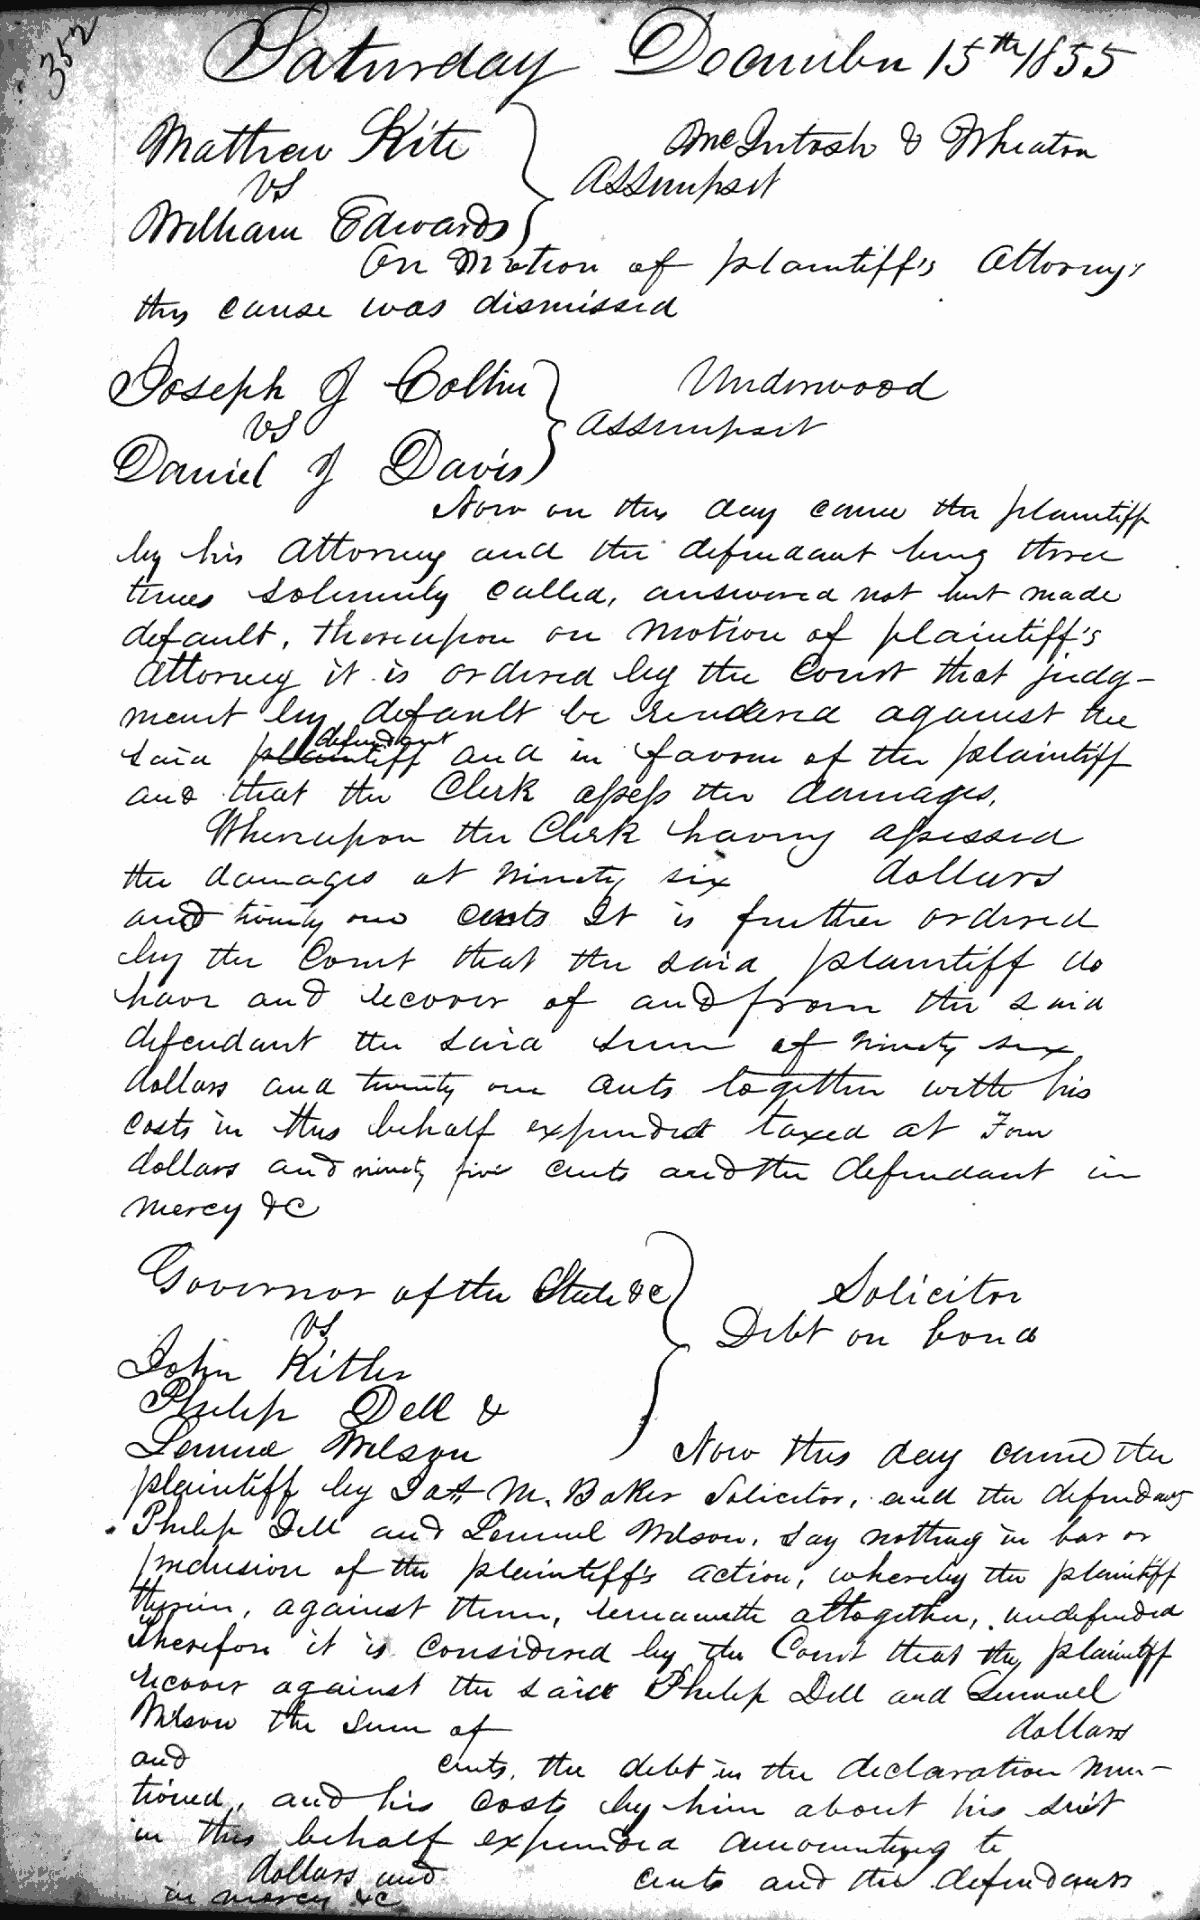 352
Saturday December 15th 1855
Mathew Kite McIntosh & Wheaton
vs Assumpsit
William Edwards
On Motion of plaintiff's Attorneys
this cause was dismissed
Joseph J Collin Underwood
vs Assumpsit
Daniel J Davis
Now on this day came the plaintiff
by his Attorney and the defendant being three
times solemnly called, answered not but made
default, thereupon on motion of plaintiff's
Attorney it is ordered by the Court that judg-
ment by default be rendered against the
said plaintiff defendant and in favour of the plaintiff
and that the Clerk assess the damages.
Whereupon the Clerk having assessed
the damages at ninety six dollars
and twenty one cents It is further ordered
by the Court that the said plaintiff do
have and recover of and from the said
defendant the said sum of ninety six
dollars and twenty one cents together with his
costs in this behalf expended taxed at Four
dollars and ninety five cents and the defendant in
mercy &C
Governor of the State &c Solicitor
vs Debt on bond
John Kitler
Philip Dell &
Lemuel Wilson Now this day came the
plaintiff by Jas M. Baker Solicitor, and the defendants
Philip Dell and Lemuel Wilson, say nothing in bar or
preclusion of the plaintiff's action, whereby the plaintiff
therein, against them, remaineth altogether, undefended
Wherefore it is considered by the Court that the plaintiff
recover against the said Philip Dell and Lemuel
Wilson the sum of dollars
and cents, the debt in the declaration men-
tioned, and his costs by him about his suit
in this behalf expended amounting to
dollars and cents and the defendants
in mercy &c